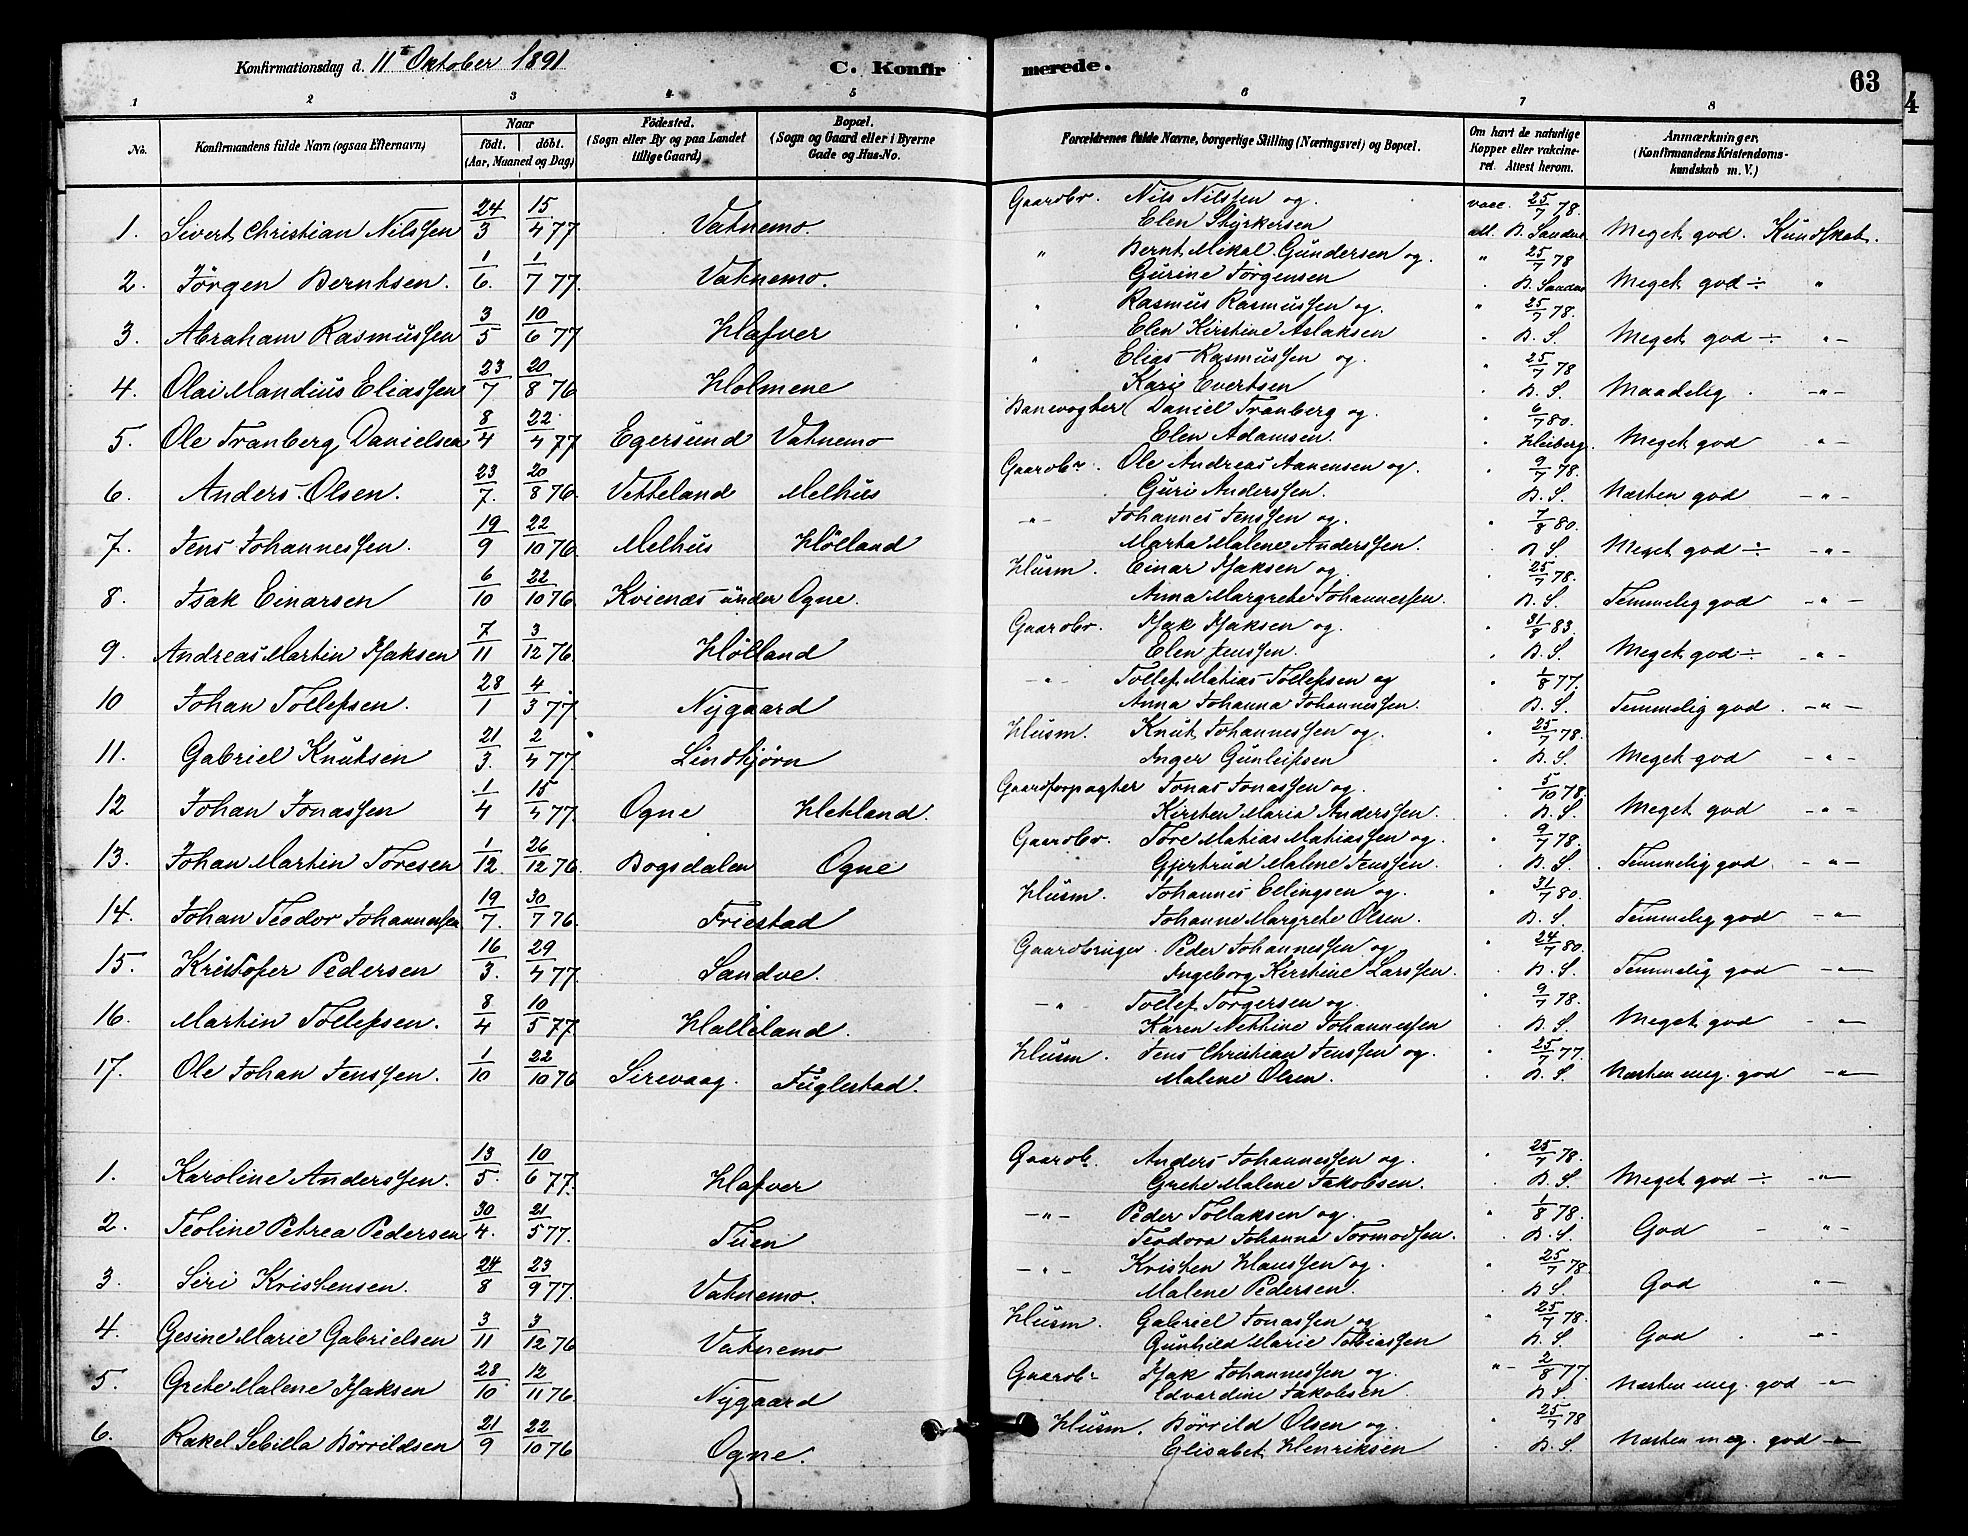 Konfirmationsdag d. 11te Oktober 1891
C. Konfirmerede.
63
4
1 2 3 4 5 6 7 8
No. Konfirmandens fulde Navn (ogsaa Efternavn) Naar födt. döbt. (Aar, Maaned og Dag) Födested. (Sogn eller By og paa Landet tillige Gaard) Bopæl. (Sogn og Gaard eller i Byerne Gade og Hus-No. Forældrenes fulde Navne, borgerlige Stilling (Næringsvei) og Bopæl. Om havt de naturlige Kopper eller vakcineret. Attest herom. Anmærkninger, (Konfirmandens Kristendomskundskab m. V.)
1. Sivert Christian Nilssen 24/3 15/4 77 Vatnemo. Gaardbr. Nils Nilssen og Elen Styrkersen vacc. 25/7 78. att. B. Sandve Meget god. Kundskab.
2. Jörgen Berntsen. 1/6. 1/7 77. Vatnemo. " Bernt Mikal Gundersen og Gurine Jörgensen " 25/7 78 B. Sandve Meget god ÷ "
3. Abraham Rasmussen 3/5 10/6 77 Hafver " Rasmus Rasmussen og Elen Kirstine Aslaksen " 25/7 78. B. S. Meget god ÷ -"-
4. Olai Mandius Eliassen 23/7 20/8 76 Holmene " Elias Rasmussen og Kari Evertsen " 25/7 78 B. S. Maadelig. -"-
5. Ole Tranberg Danielsen 8/4 22/4 77 Egersund Vatnemo Banevogter Daniel Tranberg og Elen Adamsen. " 6/7 80. Heiberg Meget god -"-
6. Anders Olsen. 23/7. 20/8 76. Vetteland Melhus Gaardbr. Ole Andreas Aanensen og Guri Anderssen. " 9/7 78. B. S. Næsten god -"-
7. Jens Johannessen. 19/9 22/10 76. Melhus Hölland -"- Johannes Jenssen og Marta Malene Anderssen. " 7/8 80. B. S. Meget god ÷ -"-
8. Isak Einarsen 6/10 22/10 76. Kvienæs under Ogne. Husm. Einar Isaksen og Anna Margrete Johannessen. " 25/7 78. B. S. Temmelig god -"-
9. Andreas Martin Isaksen 7/11 3/12 76. Hölland Gaardbr. Isak Isaksen og Elen Jenssen. " 31/8 83. B. S. Meget god ÷ -"-
10 Johan Tollefsen. 28/1 4/3 77. Nygaard -"- Tollef Matias Tollefsen og Anna Johanna Johannessen. " 1/8 77. B. S. Temmelig god. -"-
11. Gabriel Knutsen 21/3. 2/4 77. Lindtjørn Husm. Knut Johannessen og Inger Gunleifsen " 25/7 78. B. S. Meget god -"-
12 Johan Jonassen 1/4 15/4 77. Ogne Hetland. Gaardforpagter Jonas Jonassen og Kirsten Maria Anderssen. " 5/10 78. B. S. Meget god -"-
13. Johan Martin Toresen 1/12. 26/12 76. Bogsdalen Ogne Gaardbr. Tore Matias Matiassen og Gjertrud Malene Jenssen. " 9/7 78. B. S. Temmelig god -"-
14. Johan Teodor Johannessen 19/7. 30/7 76. Friestad Husm. Johannes Elingsen og Johanne Margrete Olsen. " 31/7 80. B. S. Temmelig god -"-
15. Kristofer Pedersen 16/3. 29/4 77. Sandve. Gaardbruger. Peder Johannessen og Ingeborg Kirstine Larssen. " 24/7 80. B. S. Temmelig god -"-
16. Martin Tollefsen. 8/4 10/5 77. Halleland. -"- Tollef Torgersen og Karen Nettine Johannessen " 9/7 78. B. S. Meget god -"-
17. Ole Johan Jenssen. 1/10 22/10 76 Sirevaag. Fuglestad. Husm. Jens Christian Jenssen og Malene Olsen. " 25/7 77. B. S. Næsten meg. god -"-
1. Karoline Anderssen. 13/5. 10/6 77. Hafver Gaardb. Anders Johannessen og Grete Malene Jakobsen. " 25/7 78. B. S. Meget god ÷ -"-
2. Teoline Petrea Pedersen 30/4. 21/5 77. Tuen -"- Peder Tollaksen og Teodora Johanna Tormodsen. " 1/8 78. B. S. God - -"-
3. Siri Kristensen. 24/8 23/9 77. Vatnemo. -"- Kristen Hanssen og Malene Pedersen. " 25/7 78. B. S. God -"-
4. Gesine Marie Gabrielsen 3/11 3/12 76 Vatnemo Husm. Gabriel Jonassen og Gunhild Marie Tobiassen " 25/7 78. B. S. God. -"-
5. Grete Malene Isaksen 28/10. 12/11 76. Nygaard Gaardbr. Isak Johannessen og Edvardine Jakobsen. " 2/8 77. B. S. Næsten meg. god -"-
6. Rakel Sebilla Börrildsen 21/9 22/10 76 Ogne. Husm. Börrild Olsen og Elisabet Henriksen " 25/7 78 B. S. Næsten meg. god -"-